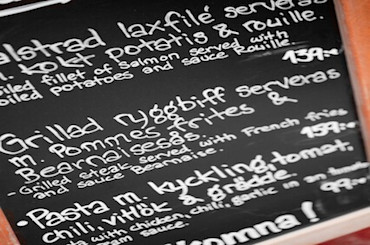 alstrad laxfilé serveras
m. kokt potatis & rouille.
oiled fillet of Salmon served with
oiled potatoes and sauce Rouille. 139:-
Grillad ryggbiff serveras
m. Pommes frites &
Bearnaisesås.
- Grilled steak served with French fries
and sauce Bearnaise. 159:-
• Pasta m. kyckling, tomat,
chili, vitlök & grädde.
asta with chicken, chili, garlic in an
am sauce. 99:-
komna!